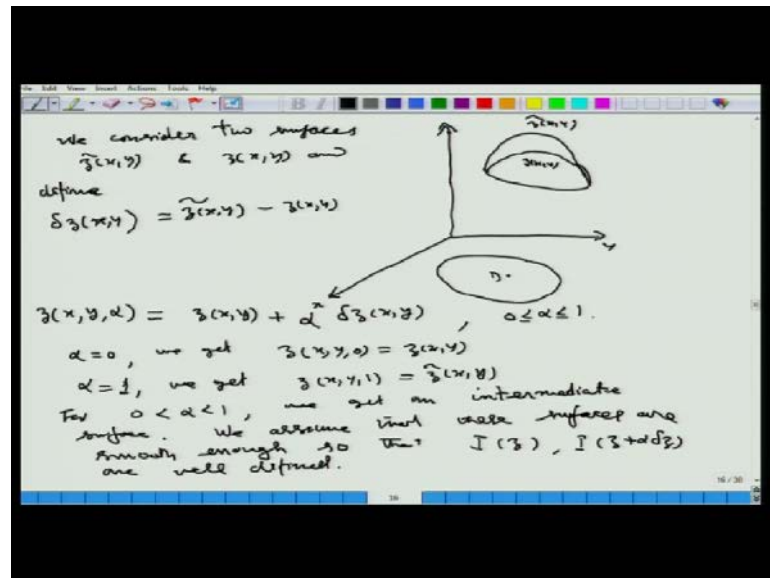 File Edit View Insert Actions Tools Help
We consider two surfaces
z̃(x,y) & z(x,y) and
define
δz(x,y) = z̃(x,y) - z(x,y)
z̃(x,y)
z(x,y)
y
D
x
z(x,y,α) = z(x,y) + α δz(x,y) , 0≤α≤1.
α=0, we get z(x,y,0) = z(x,y)
α=1, we get z(x,y,1) = z̃(x,y)
For 0<α<1, we get an intermediate
surface. We assume that these surfaces are
smooth enough so that I(z), I(z+αδz)
are well defined.
16 / 30
16